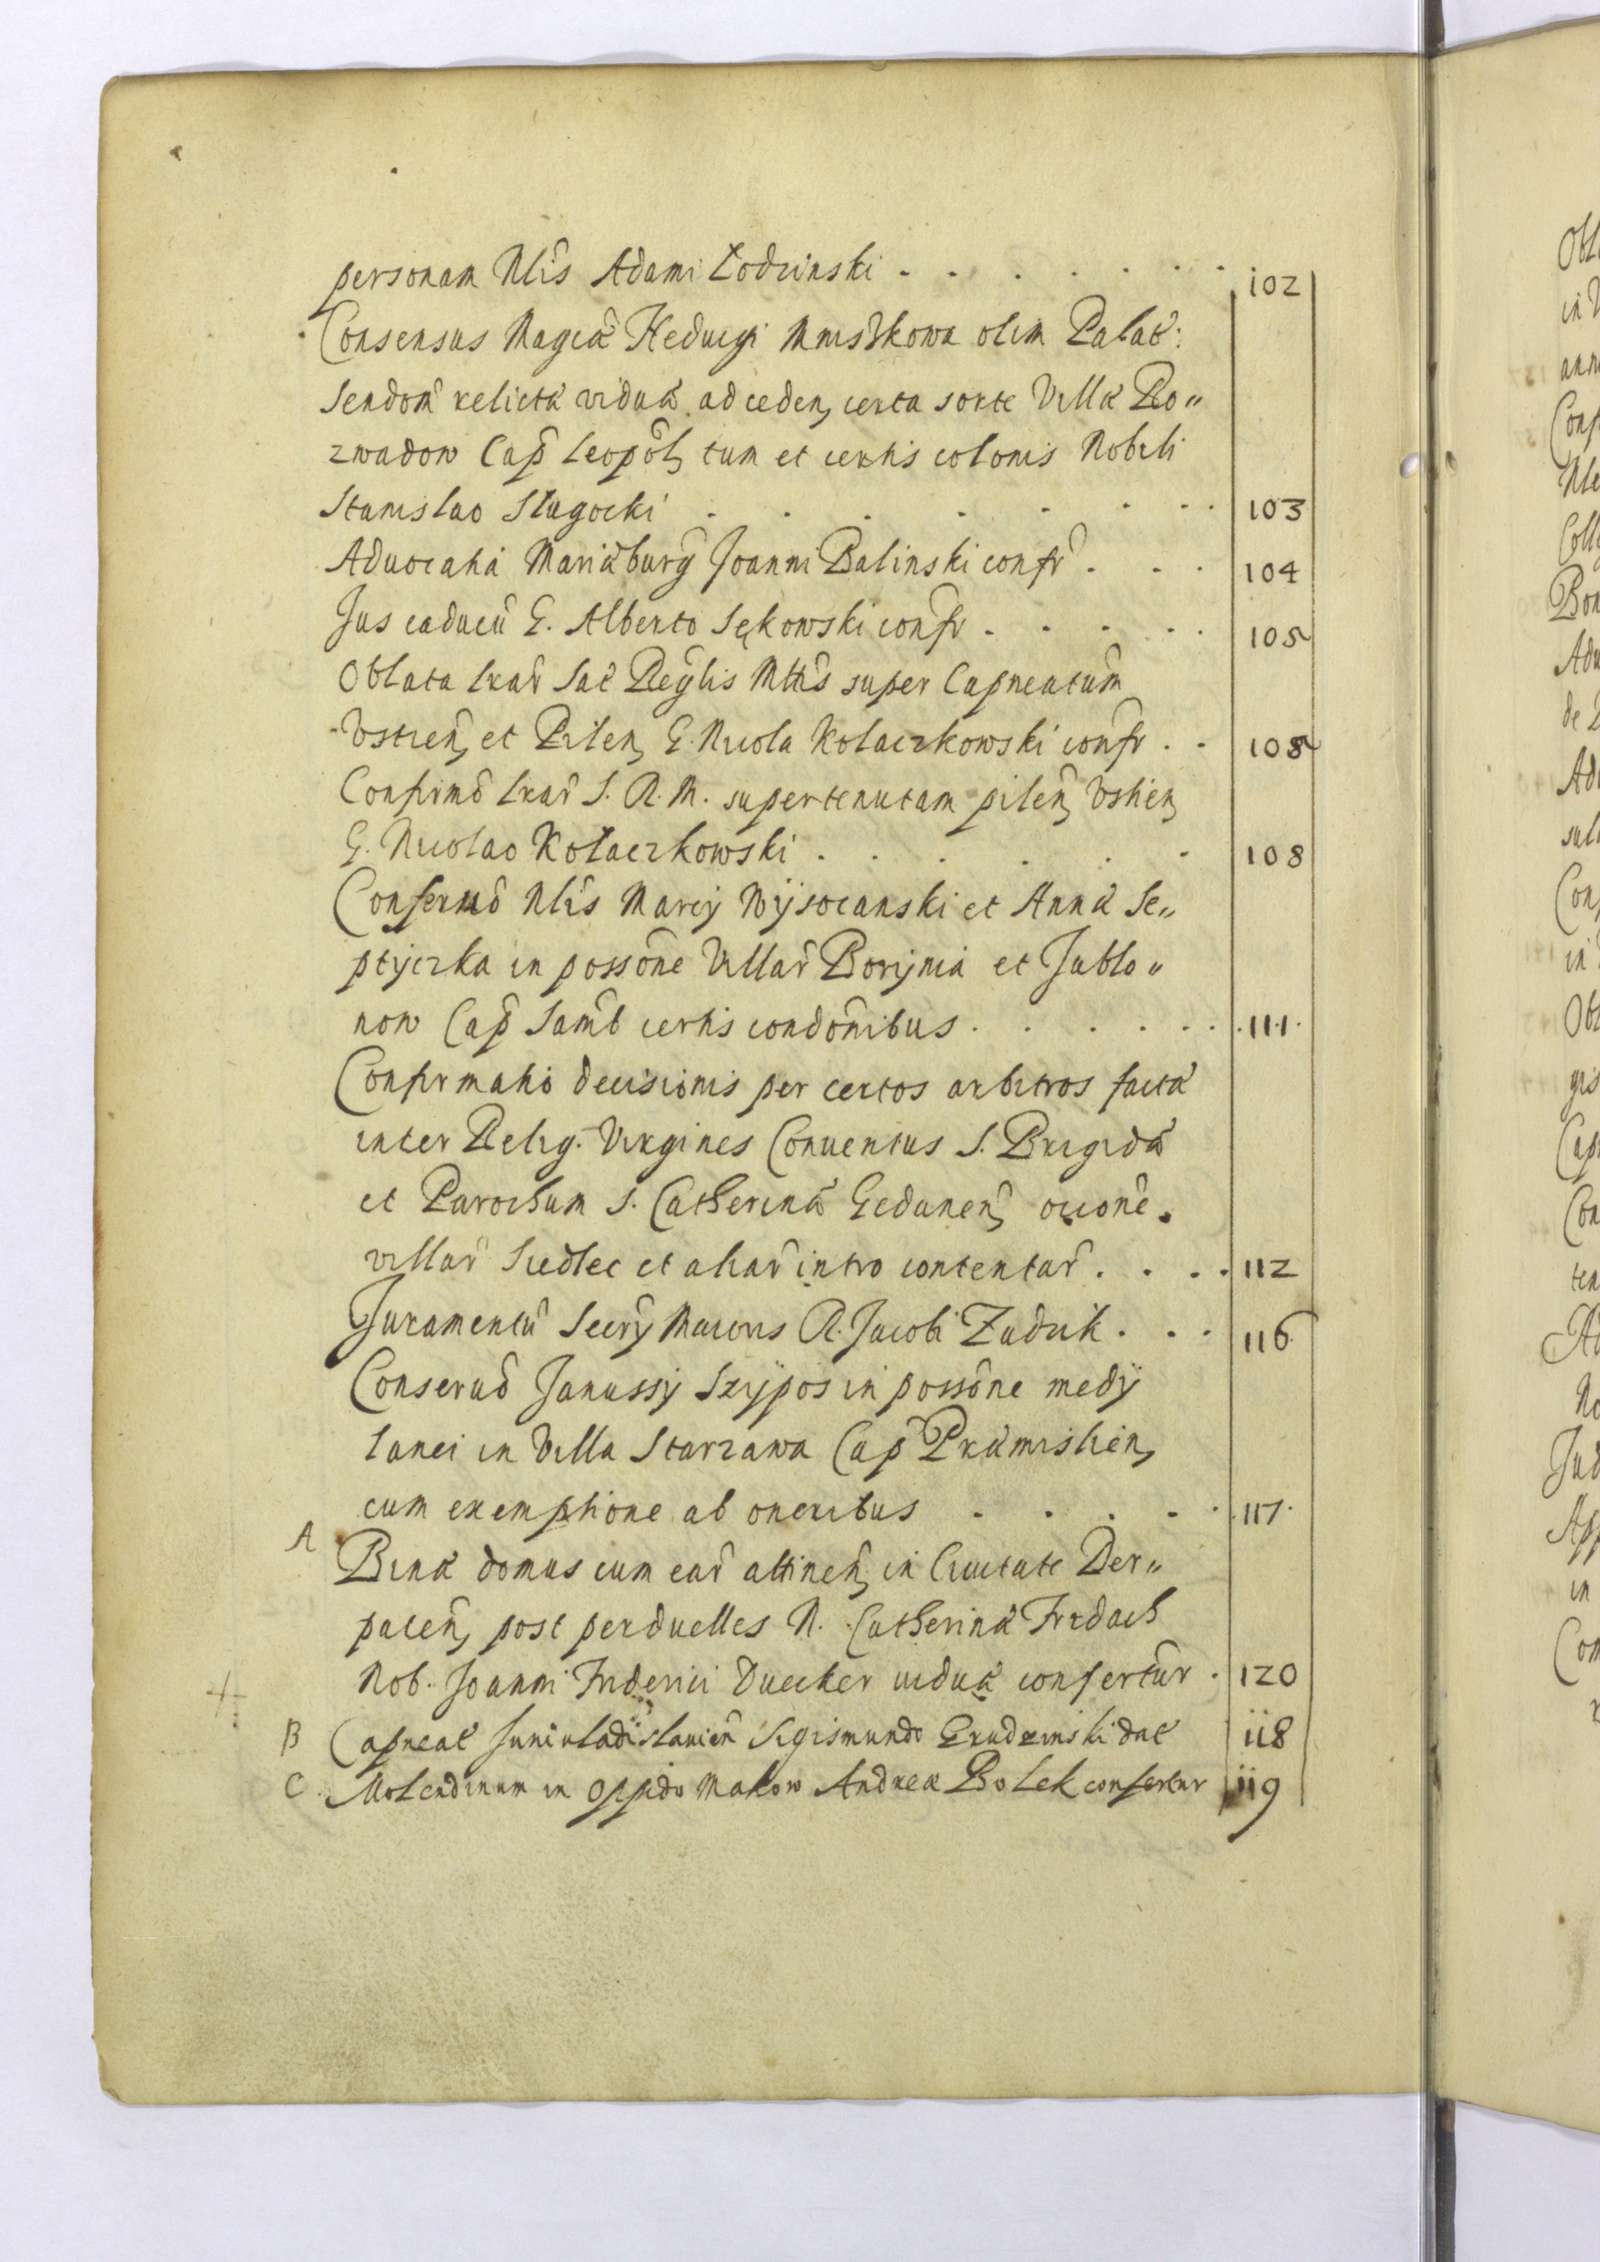 personam Nlis Adami Łodzinski . . . . . . . 102
Consensus Magcæ Heduigi Mniszkowa olim Palat:
Sendom relictæ viduæ ad ceden, certa sorte Villæ Ro„
zwadow Cap Leopol, tum et certis colonis Nobili
Stanislao Sługocki . . . . . . . 103
Aduocatia Mariæburg Joanni Balinski confr . . . 104
Jus caducu G. Alberto Sękowski confr . . . . . 105
Oblata lrar Sac Reglis Mttis super Capneatum
Vscien, et Pilen, G. Nicola Kołaczkowski confr . . 108
Confirmo lrar S. R. M. super tenutam pilen, Vstien,
G. Nicolao Kołaczkowski . . . . . . 108
Conseruo Nlis Marcij Wysocanski et Annæ Se„
ptyczka in possone Villar Borynia et Jablo„
now Cap Samb certis condonibus . . . . . . 111.
Confirmatio decisionis per certos arbitros factæ
inter Relig. Virgines Conuentus S. Brigidæ
et Parochum S. Catherinæ Gedanen, ocione.
villar Siedlec et aliar intro contentar . . . . 112
Juramentu Secry Maioris R. Jacobi Zadzik . . . 116
Conseruo Janussy Szypos in possone medij
lanei in Villa Starzawa Cap Præmislien,
cum exemptione ab oneribus . . . . . 117.
A Binæ domus cum ear attinen, in Ciuitate Der„
paten, post perduelles N. Catherinæ Frzdach
Nob. Joanni Friderici Duecker viduæ confertur . 120
B Capneat Juniuladislauien Sigismundo Grudzinski dat 118
C. Molendinum in Oppido Makow Andreæ Bolek confertur 119